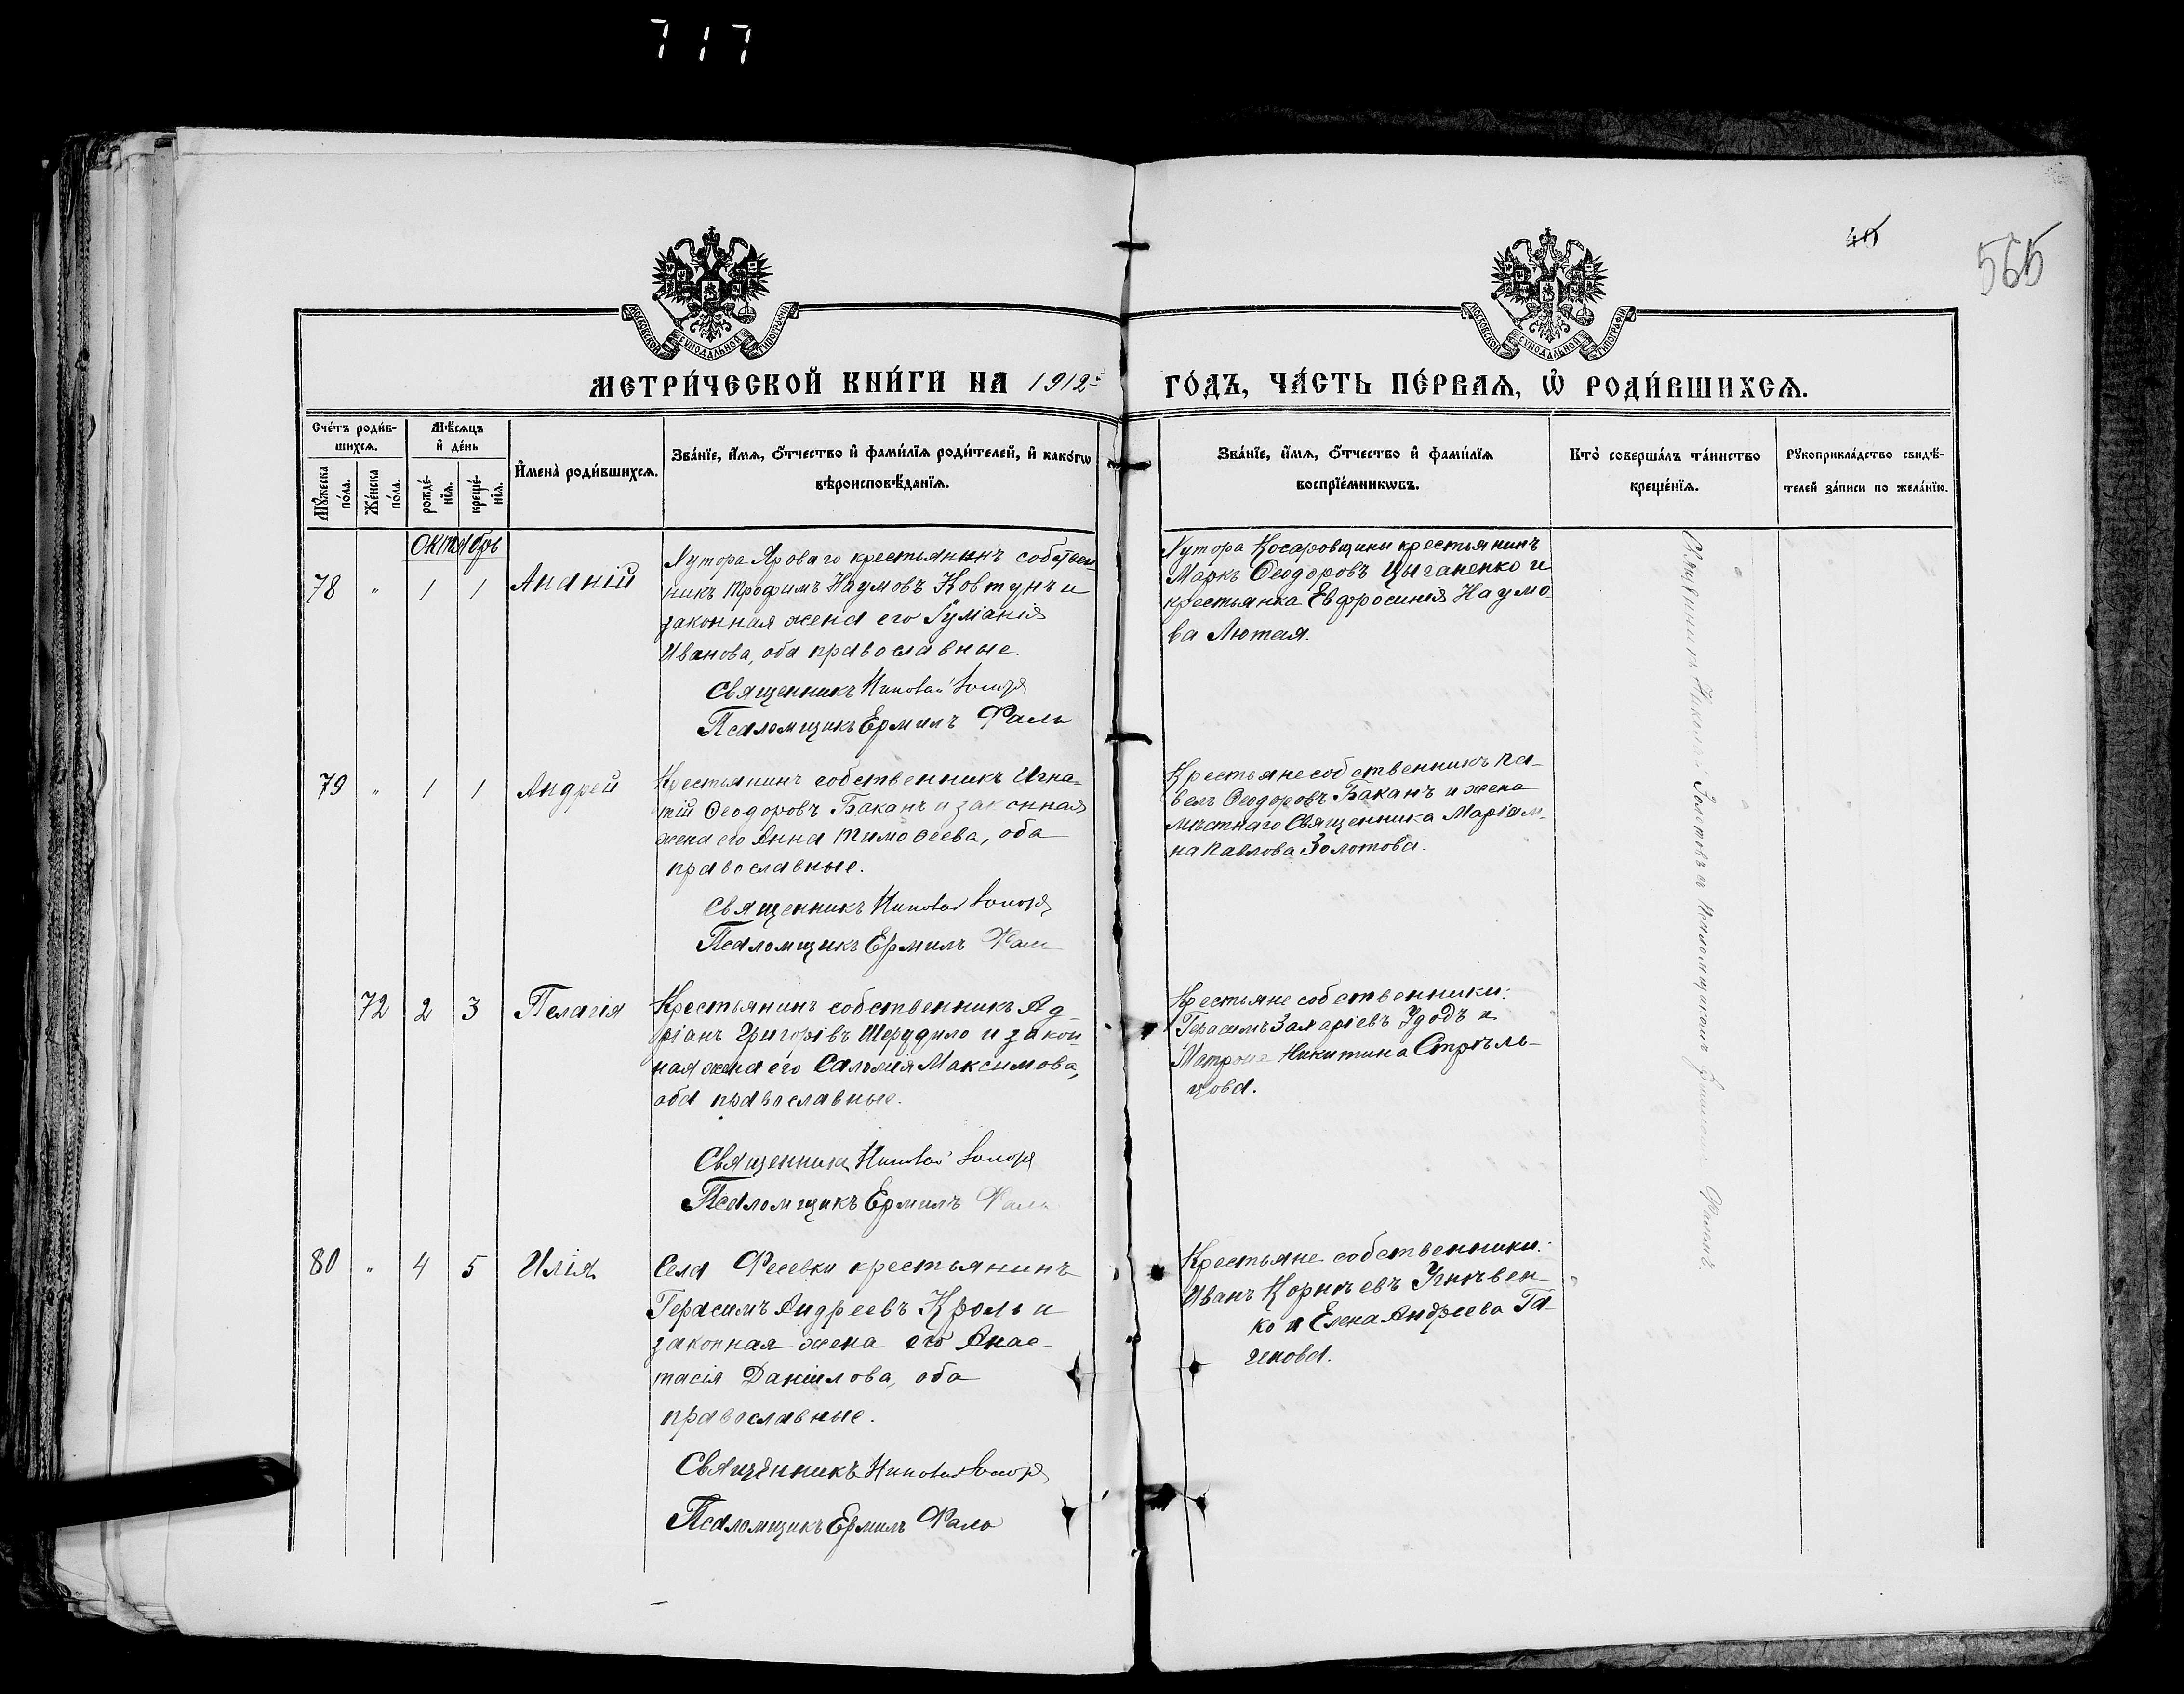 717
40
565
МОСКОВСКОЙ СѴНОДАЛЬНОЙ ТИПОГРАФІИ
МОСКОВСКОЙ СѴНОДАЛЬНОЙ ТИПОГРАФІИ
МЕТРИ́ЧЕСКОЙ КНИ́ГИ НА 1912й ГО́ДЪ, ЧА́СТЬ ПЕ́РВАѦ, Ѡ҆ РОДИ́ВШИХСѦ.
Сче́тъ роди́в-
шихсѧ.
Мѣ́сѧцъ
и҆ де́нь
Мꙋ́жеска по́ла.
Же́нска по́ла.
рожде́-
нїѧ.
креще́-
нїѧ.
И҆мена̀ роди́вшихсѧ.
Зва́нїе, и҆́мѧ, ѻ҆́тчество и҆ фами́лїѧ роди́телей, и҆ како́гѡ
вѣроисповѣ́данїѧ.
Зва́нїе, и҆́мѧ, ѻ҆́тчество и҆ фами́лїѧ
воспрїе́мникѡвъ.
Кто̀ соверша́лъ та́инство
креще́нїѧ.
Рꙋкоприкла́дство свидѣ́-
телей за́писи по жела́нїю.
Октябрь
78 " 1 1 Ананій
Хутора Яроваго крестьянинъ собствен-
никъ Трофимъ Наумовъ Ковтунъ и
законная жена его Іуліанія
Иванова, оба православные.
Священникъ Николай
Псаломщикъ Ермилъ Фаль
Хутора Косаровщины крестьянинъ
Маркъ Ѳеодоровъ Цыганенко и
крестьянка Евфросинія Наумо-
ва Лютая.
79 " 1 1 Андрей
Крестьянинъ собственникъ Игна-
тій Ѳеодоровъ Баканъ и законная
жена его Анна Тимоѳеева, оба
православные.
Священникъ Николай
Псаломщикъ Ермилъ Фаль
Крестьяне собственникъ Па-
велъ Ѳеодоровъ Баканъ и жена
мѣстнаго Священника Маріам-
на Павлова Золотова.
72 2 3 Пелагія
Крестьянинъ собственникъ Ад-
ріанъ Григорівъ Шерудило и закон-
ная жена его Саломія Максимова,
оба православные.
Священникъ Николай
Псаломщикъ Ермилъ Фаль
Крестьяне собственники:
Герасимъ Захаріевъ Удодъ и
Матрона Никитина Стрѣль-
цова.
80 " 4 5 Илія
Села Фесевки крестьянинъ
Герасимъ Андреевъ Кроль и
законная жена его Анас-
тасія Даніилова, оба
православные.
Священникъ Николай
Псаломщикъ Ермилъ Фаль
Крестьяне собственники:
Иванъ Корнѣевъ Угнивен-
ко и Елена Андреева Га-
ченова.
Священникъ Николай Золотовъ съ Псаломщикомъ Ермиломъ Фалемъ.